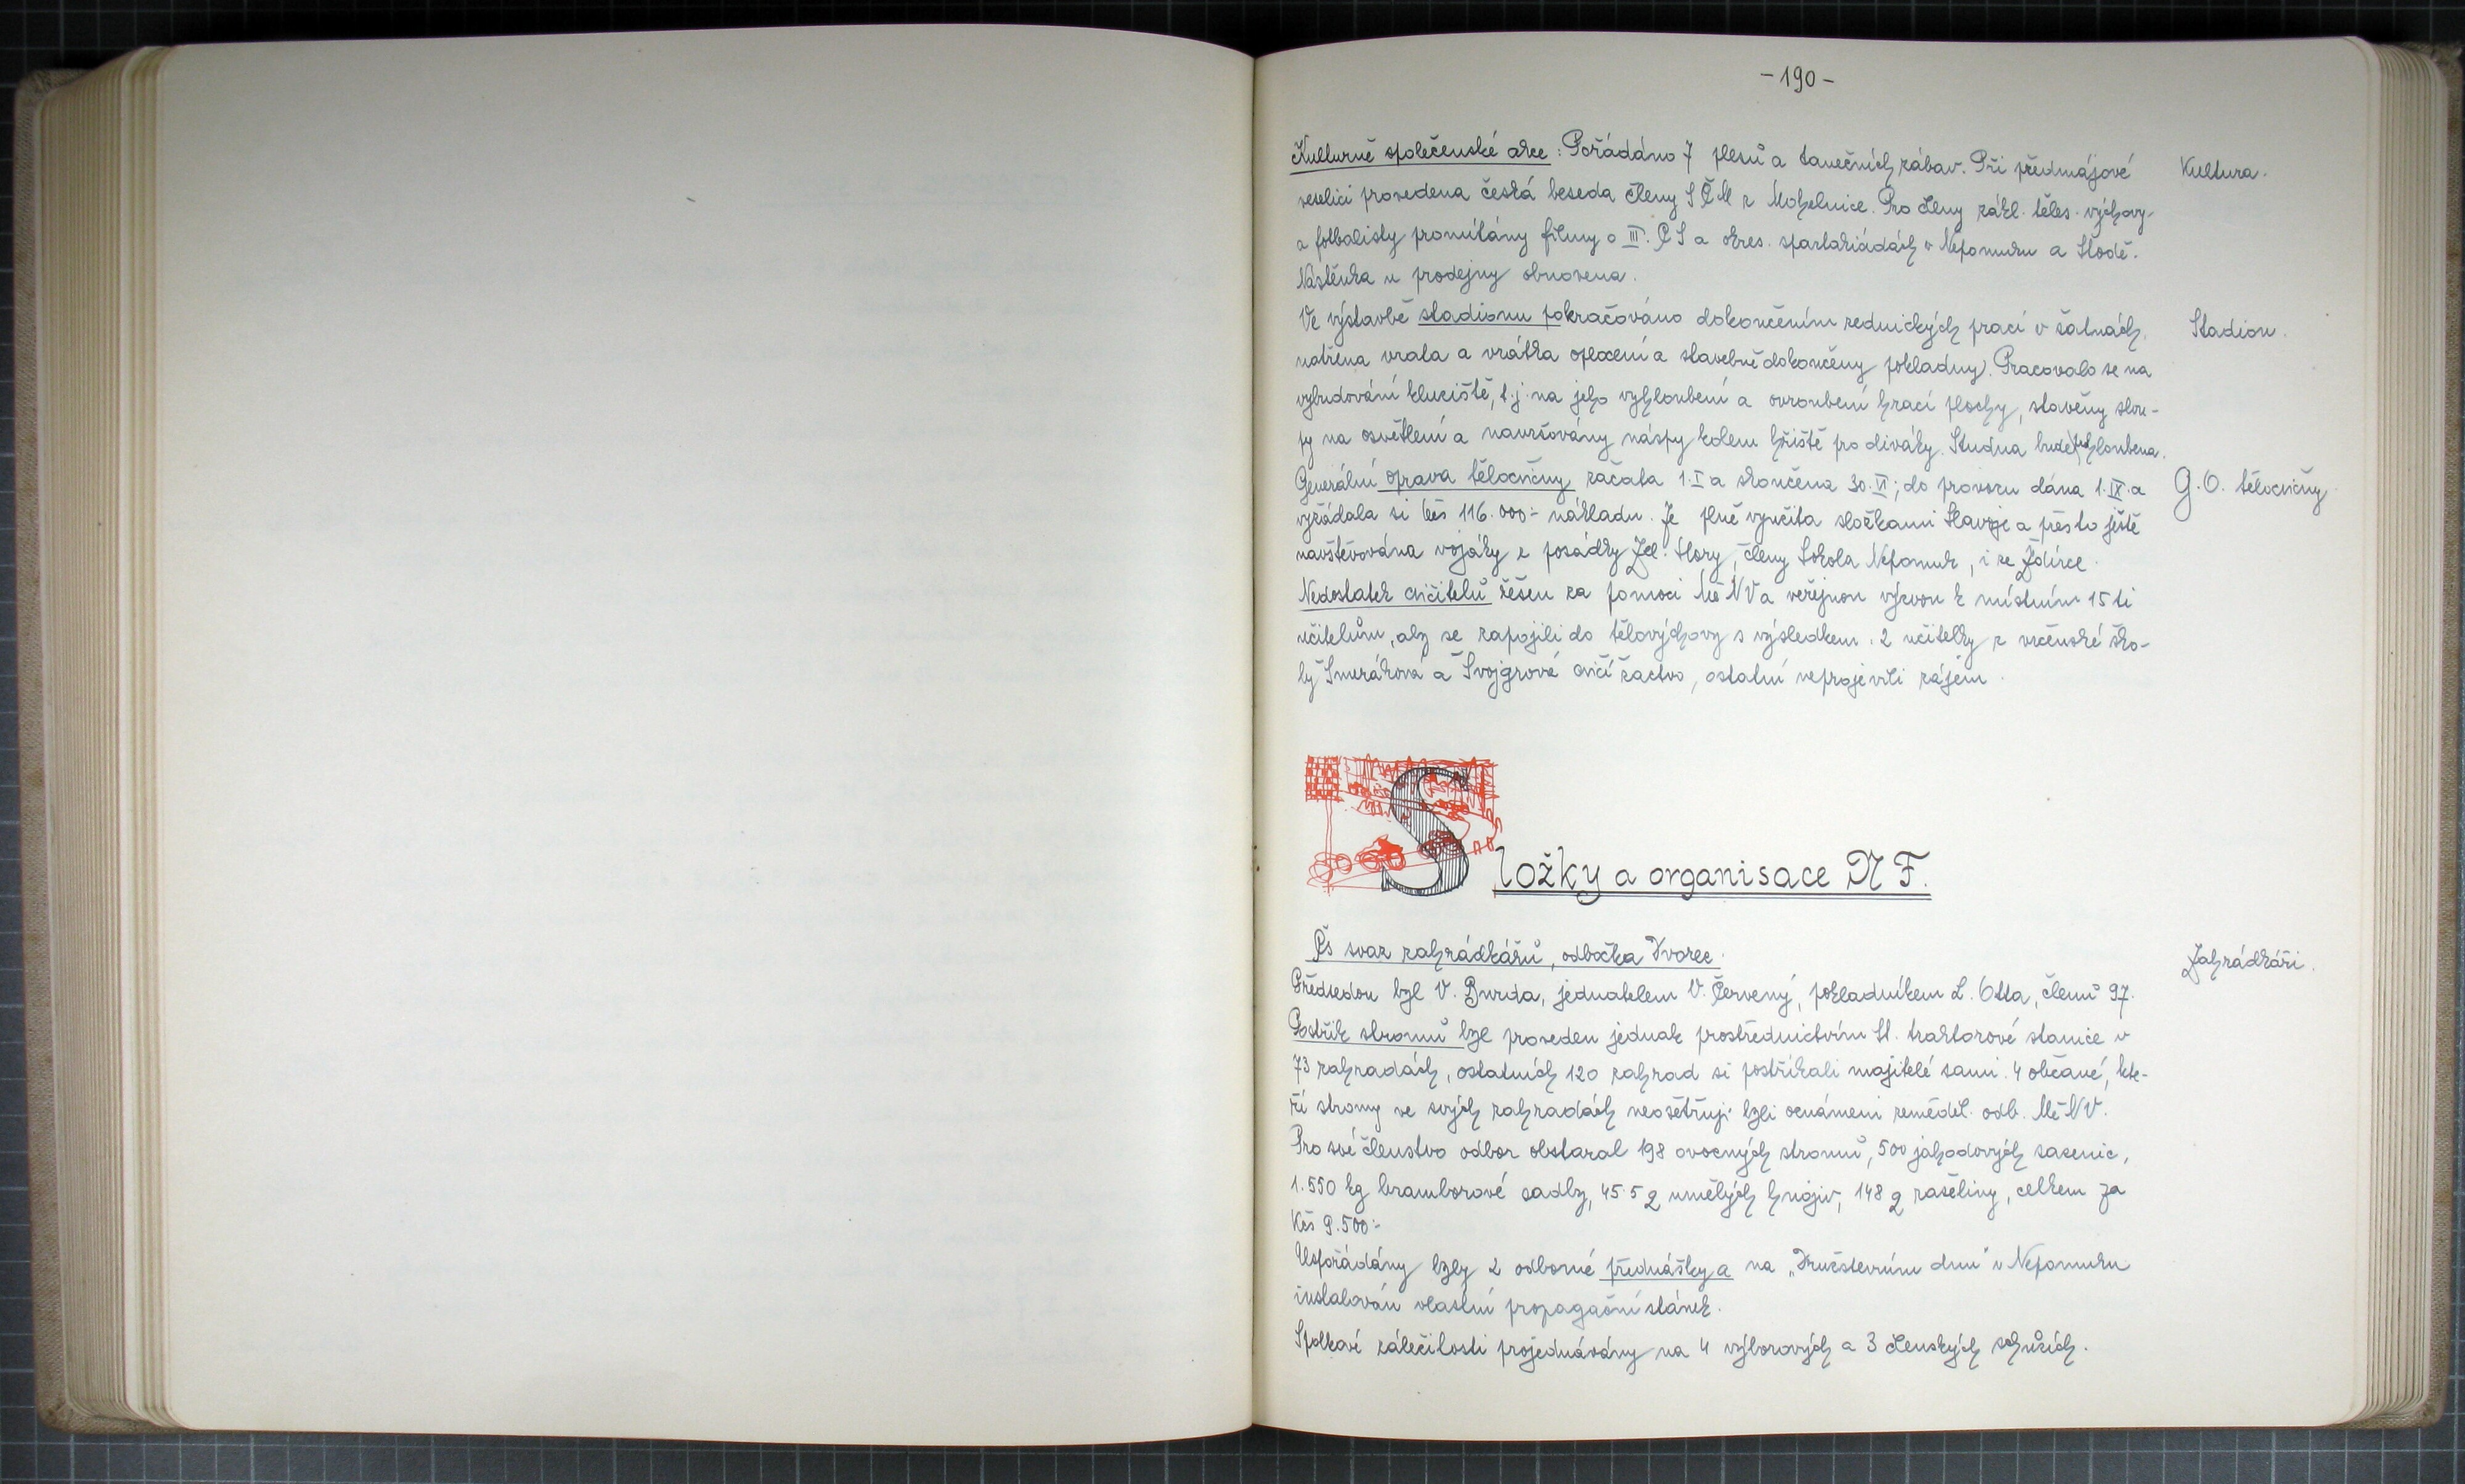 -190-
Kulturně společenské akce: Pořádáno 7 plesů a tanečních zábav. Při předmájové
Kultura.
veselici provedena česká beseda členy SČM z Mohelnice. Pro členy zákl. těles. výchovy
a fotbalisty promítány filmy o III. CS a okres. spartakiádách v Nepomuku a Stodě.
Nástěnka u prodejny obnovena.
Ve výstavbě stadionu pokračováno dokončením zednických prací v šatnách,
Stadion.
natřena vrata a vrátka oplocení a stavebně dokončeny pokladny. Pracovalo se na
vybudování kluziště, t.j. na jeho vyhloubení a ovroubení hrací plochy, stavěny slou-
py na osvětlení a navršovány náspy kolem hřiště pro diváky. Studna bude prohloubena.
Generální oprava tělocvičny začata 1.I a skončena 30.VI; do provozu dána 1.IX. a
G.O. tělocvičny
vyžádala si Kčs 116.000:- nákladu. Je plně využita složkami Slavoje a přesto ještě
navštěvována vojáky z posádky Zel. Hory, členy Sokola Nepomuk, i ze Ždírce.
Nedostatek cvičitelů řešen za pomoci MěNV a veřejnou výzvou k místním 15ti
učitelům, aby se zapojili do tělovýchovy s výsledkem: 2 učitelky z vrčenské ško-
ly Smeráková a Švojgrová cvičí žactvo, ostatní neprojevili zájem.
Složky a organisace NF.
Čs svaz zahrádkářů, odbočka Dvorec.
Zahrádkáři.
Předsedou byl V. Burda, jednatelem V. Červený, pokladníkem L. Otta, členů 97.
Postřik stromů byl proveden jednak prostřednictvím St. traktorové stanice v
73 zahradách, ostatních 120 zahrad si postříkali majitelé sami. 4 občané, kte-
ří stromy ve svých zahradách neošetřují byli oznámeni zeměděl. odb. MěNV.
Pro své členstvo odbor obstaral 198 ovocných stromů, 500 jahodových sazenic,
1.550 kg bramborové sadby, 45.5 q umělých hnojiv, 148 q rašeliny, celkem za
Kčs 9.500:-
Uspořádány byly 2 odborné přednášky a na „Družstevním dnu" v Nepomuku
instalován vlastní propagační stánek.
Spolkové záležitosti projednávány na 4 výborových a 3 členských schůzích.